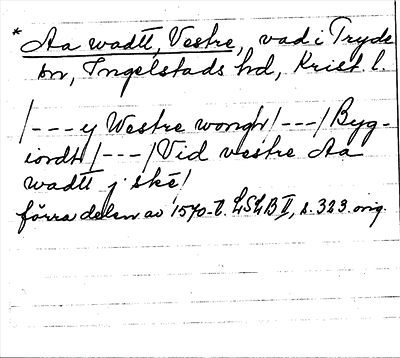 * Aa wadtt, Vestre, vad i Tryde
sn, Ingelstads hd, Krist. l.
/---y Westre wongh/---/Byg-
iordh/---/Vid vestre Aa
wadtt j ské/
förra delen av 1570-t. LSLB II, s. 323. orig.